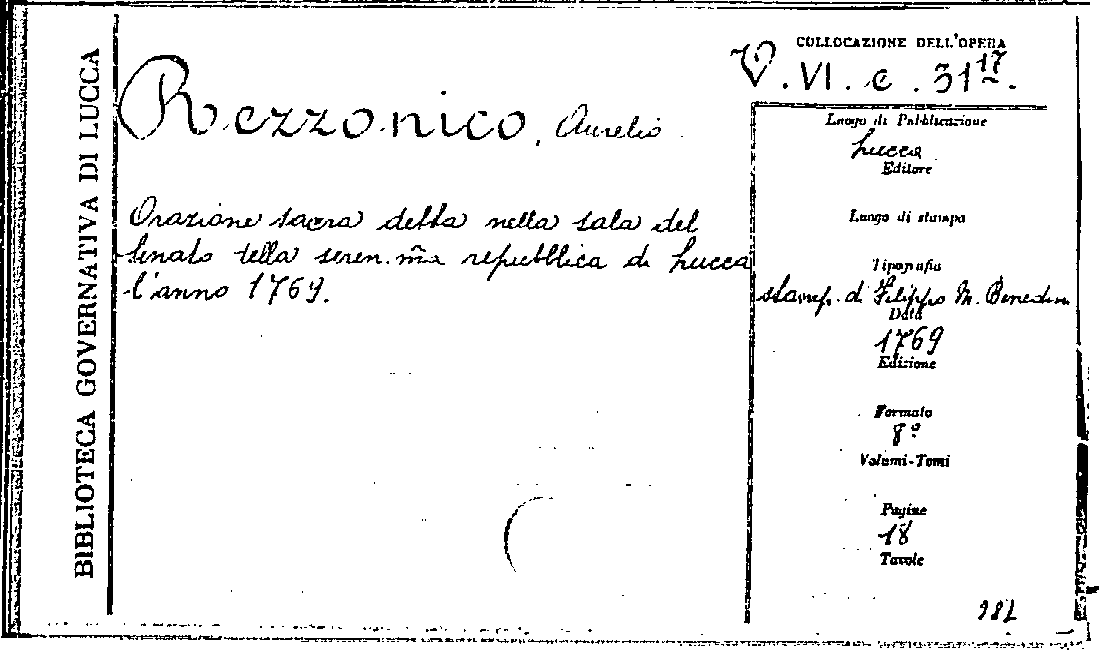 BIBLIOTECA GOVERNATIVA DI LUCCA
Rezzonico, Aurelio
Orazione sacra detta nella sala del
Senato della seren.m̃a repubblica di Lucca
l'anno 1769.
COLLOCAZIONE DELL'OPERA
V. VI. c. 31 17.
Luogo di Pubblicazione
Lucca
Editore
Luogo di stampa
Tipografia
stamp. di Filippo M. Benedini
Data
1769
Edizione
Formato
8°
Volumi-Tomi
Pagine
18
Tavole